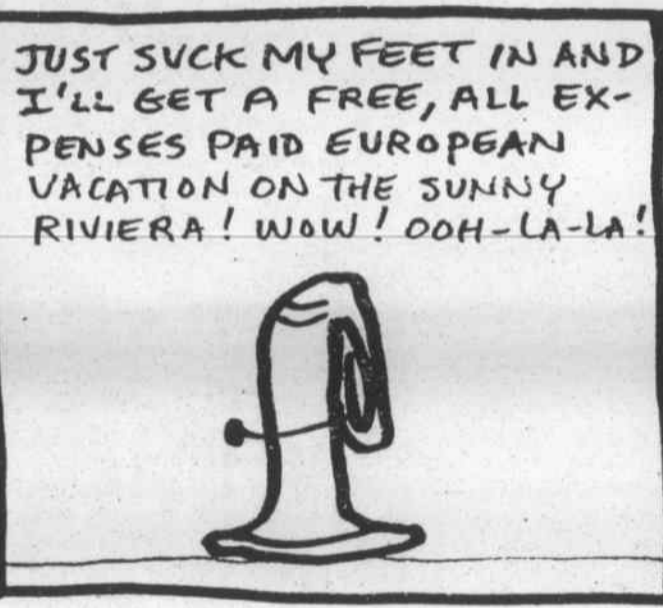 JUST SUCK MY FEET IN AND
I'LL GET A FREE, ALL EX-
PENSES PAID EUROPEAN
VACATION ON THE SUNNY
RIVIERA! WOW! OOH-LA-LA!